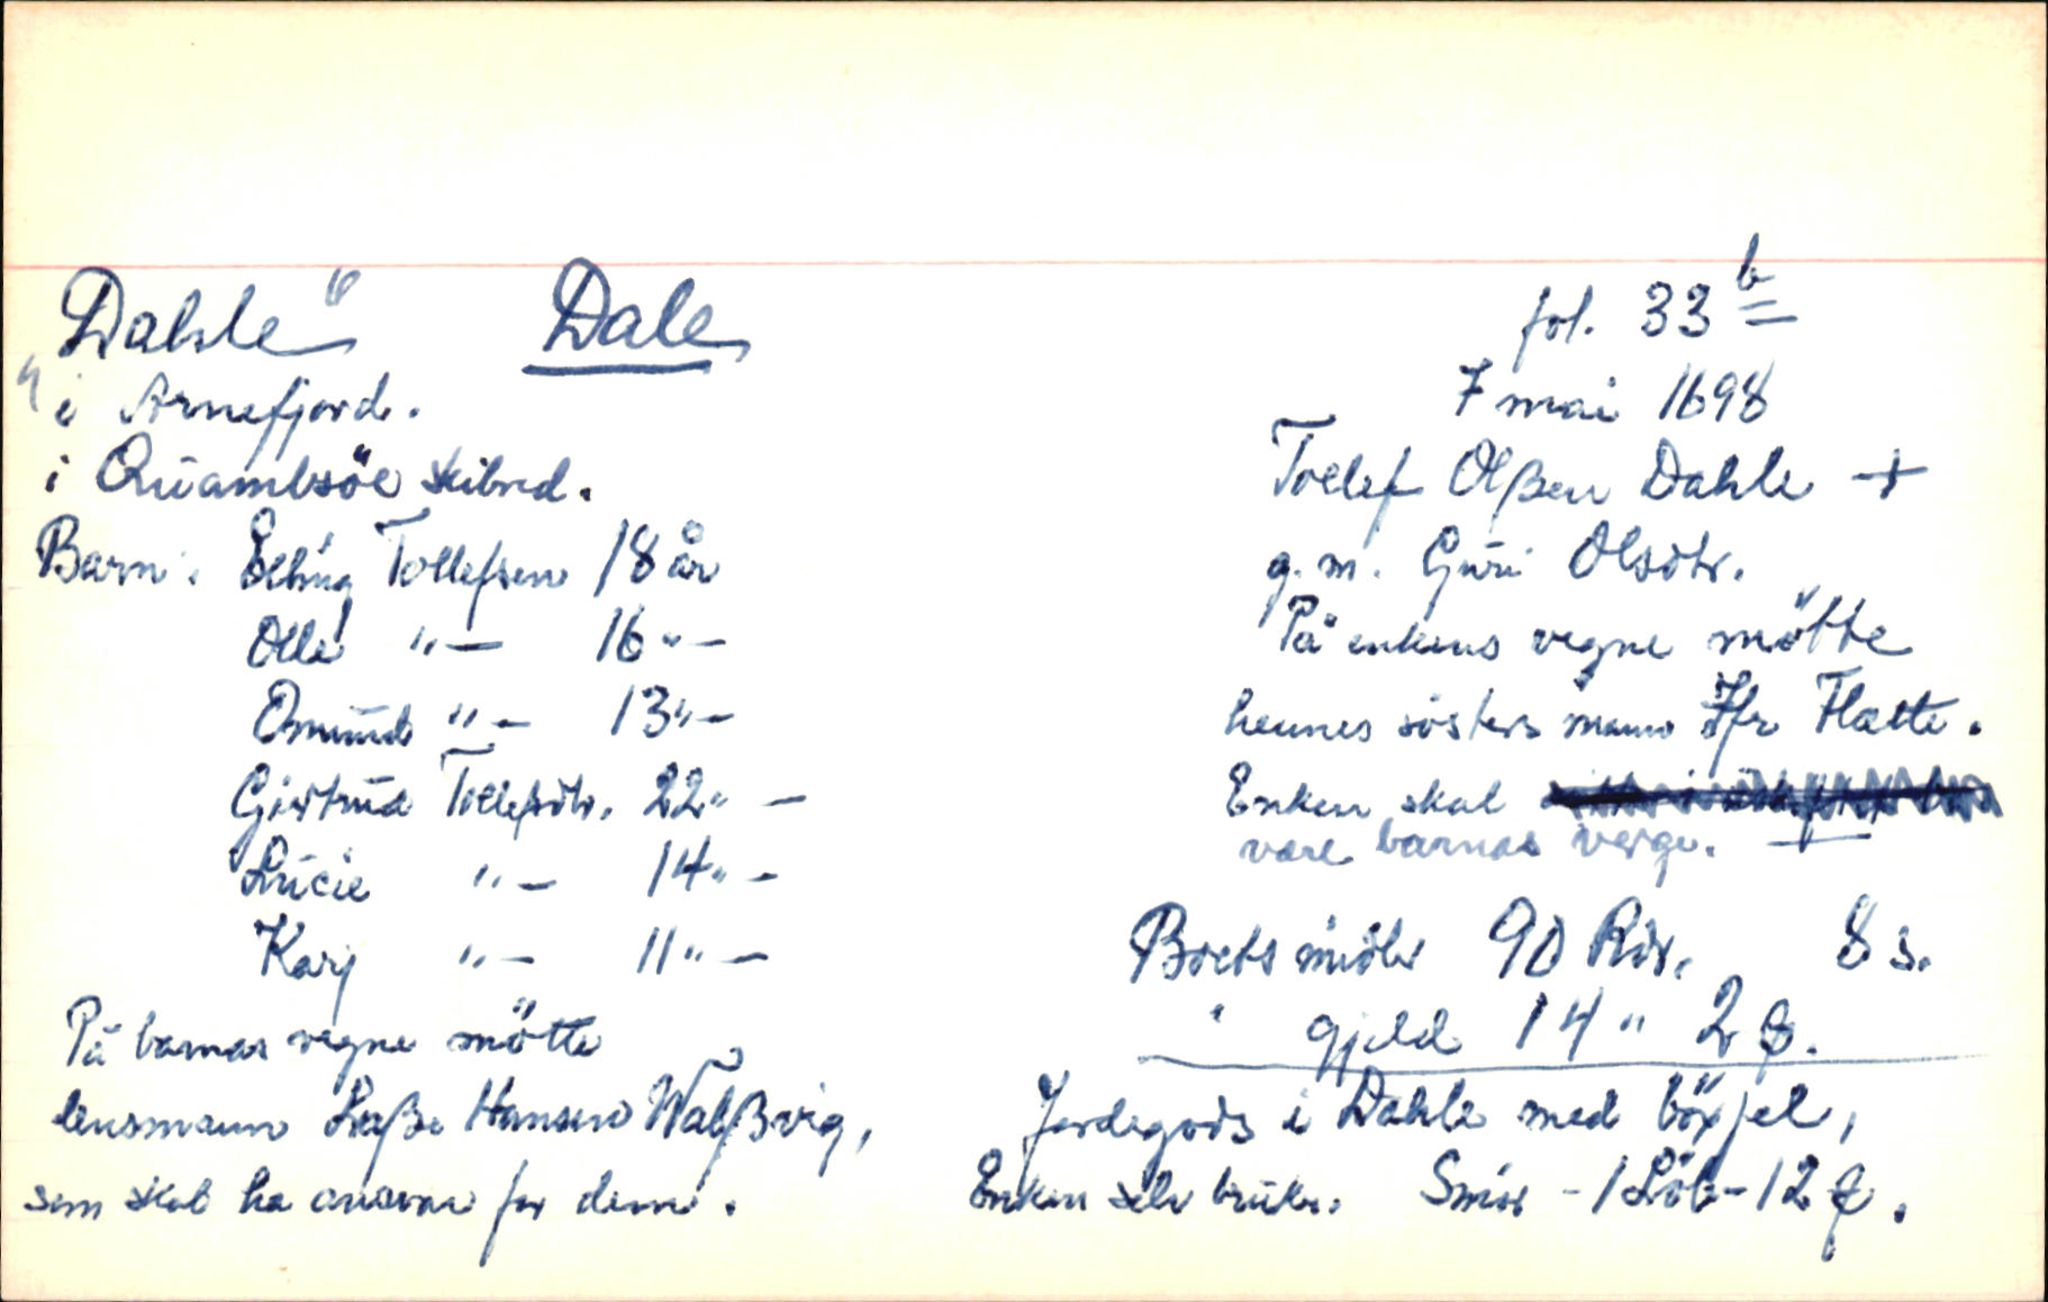 Dahle" Dale
" i Arnefjord.
i Quambsöe skibred.
Barn: Elling Tollefsen 18 år
Olle "— 16 "—
Omund "— 13 "—
Giertrud Tollefsdtr. 22 "—
Lucie "— 14 "—
Karj "— 11 "—
På barnas vegne mötte
lensmann Laße Hansen Walßvig,
som skal ha ansvar for dem.
fol. 33 b
7 mai 1698
Tollef Olßen Dahle +
g.m. Guri Olsdtr.
På enkens vegne mötte
hennes sösters mann Ifr Flatte.
Enken skal
være barnas verge.
Boets midler 90 Rdr. 8 s.
" gjeld 14 " 2 ß.
Jordegods i Dahle med böxsel,
Enken selv bruker. Smör - 1 Löb - 12